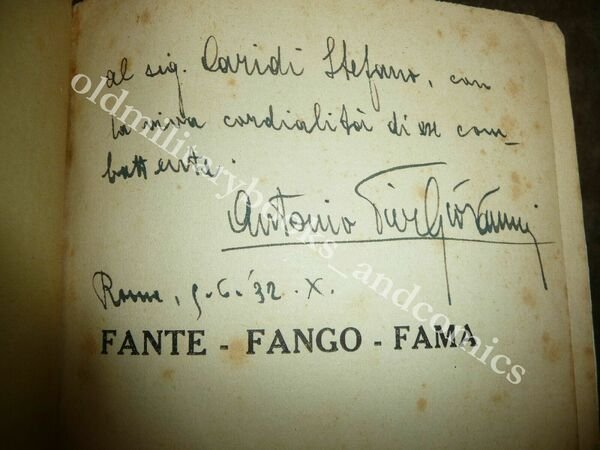 al sig. Caridi Stefano, con
la viva cordialità di ex com-
battente.
Antonio PierGiovanni
Roma, 9.6.'32.X.
FANTE - FANGO - FAMA
oldmilitarybooks_andcomics